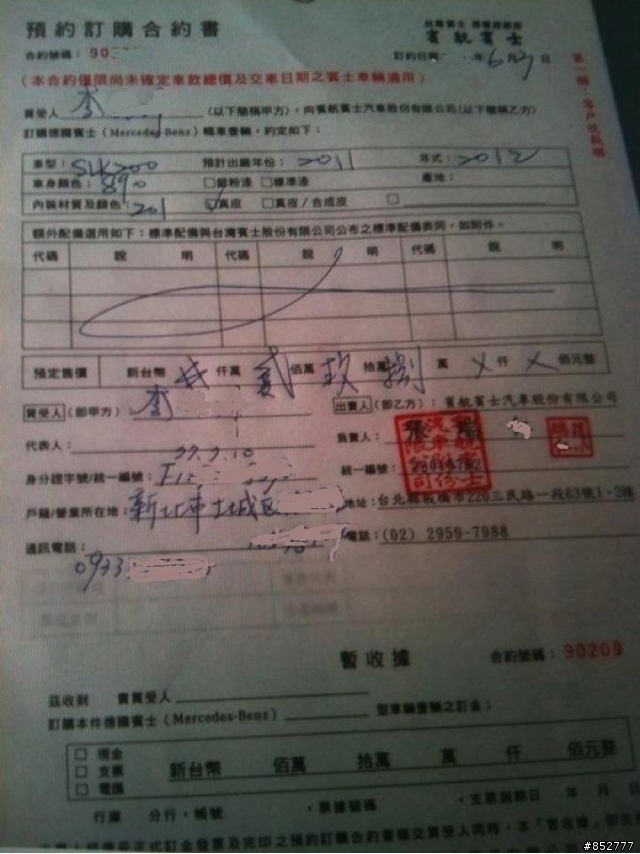 預約訂購合約書
賓航賓士
合約號碼：90
訂約日期 年6月 日
(本合約僅限尚未確定車款總價及交車日期之賓士車輛適用)
第一聯：客戶收執聯
買受人 李 (以下簡稱甲方)，向賓航賓士汽車股份有限公司(以下簡稱乙方)
訂購德國賓士(Mercedes-Benz)轎車壹輛，約定如下：
車型：SLK200 預計出廠年份：2011 年式：2012
車身顏色：890 □銀粉漆 □標準漆 產地：
內裝材質及顏色：201 □真皮 □真皮/合成皮 □
額外配備選用如下：標準配備與台灣賓士股份有限公司公布之標準配備表同，如附件。
代碼 說明 代碼 說明 代碼 說明
預定售價 新台幣 仟萬 貳 佰萬 玖 拾萬 捌 萬 X 仟 X 佰元整
買受人(即甲方) 李 出賣人(即乙方)：賓航賓士汽車股份有限公司
代表人： 負責人：
身分證字號/統一編號： 統一編號：
戶籍/營業所在地：新北市土城區 地址：台北縣板橋市220三民路一段63號1、2樓
通訊電話： 電話：(02) 2959-7988
0933
暫收據 合約號碼：90209
茲收到 貴買受人
訂購本件德國賓士(Mercedes-Benz) 型車輛壹輛之訂金：
□ 現金
□ 支票
□ 電匯
新台幣 佰萬 拾萬 萬 仟 佰元整
行庫 分行，帳號 ，票據號碼 ，支票到期日 年 月 日
#852777